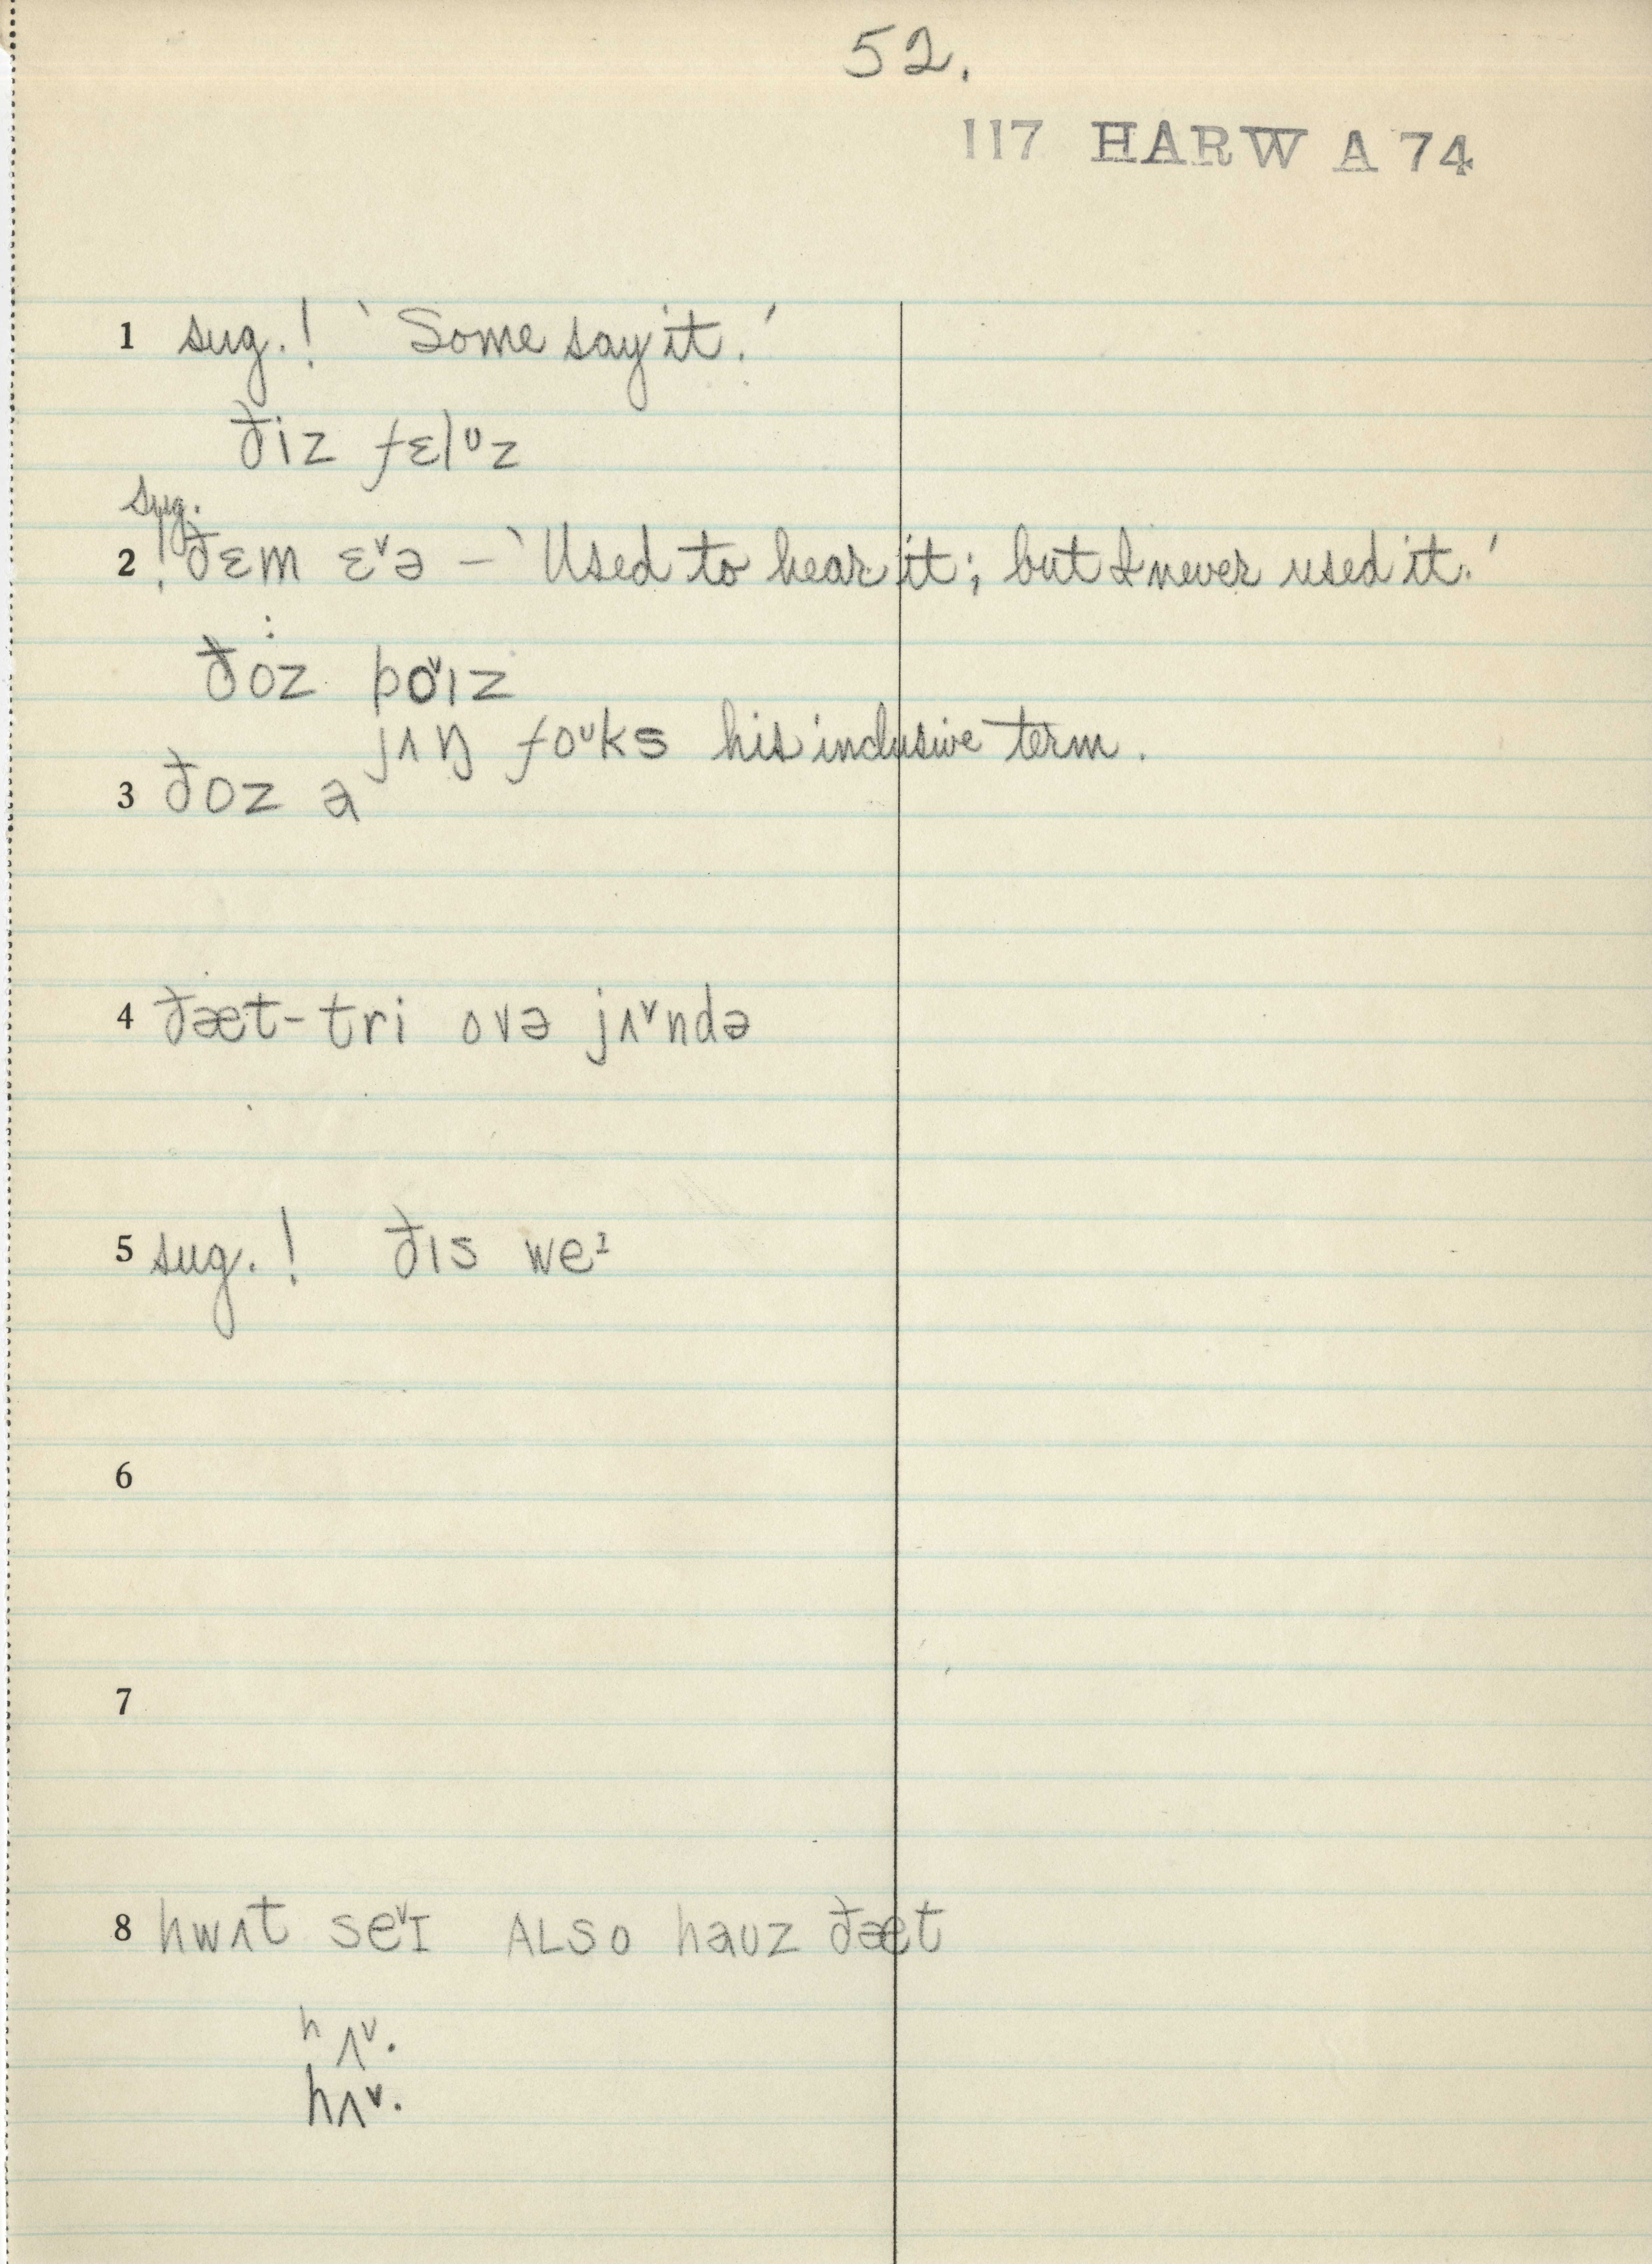 52.
117 HARW A 74
1 sug.! 'Some say it.'
ðiz fɛlᶷz
sug.
2 ! ðɛm ɛ˅ə – 'Used to hear it; but I never used it.'
ðoz bo˅ɪz
jʌŋ foᶷks his inclusive term.
3 ðoz ə
4 ðæt-tri ovə jʌ˅ndə
5 sug.! ðɪs weᶦ
6
7
8 hwʌt se˅ɪ ALSO hauz ðæt
ʰʌ˅.
hʌ˅.